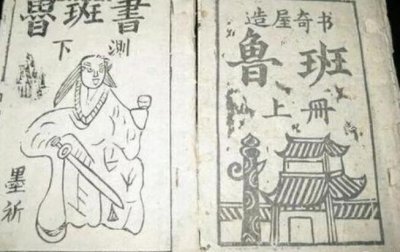 魯班書
下測
墨祈
造屋奇书
鲁班
上冊